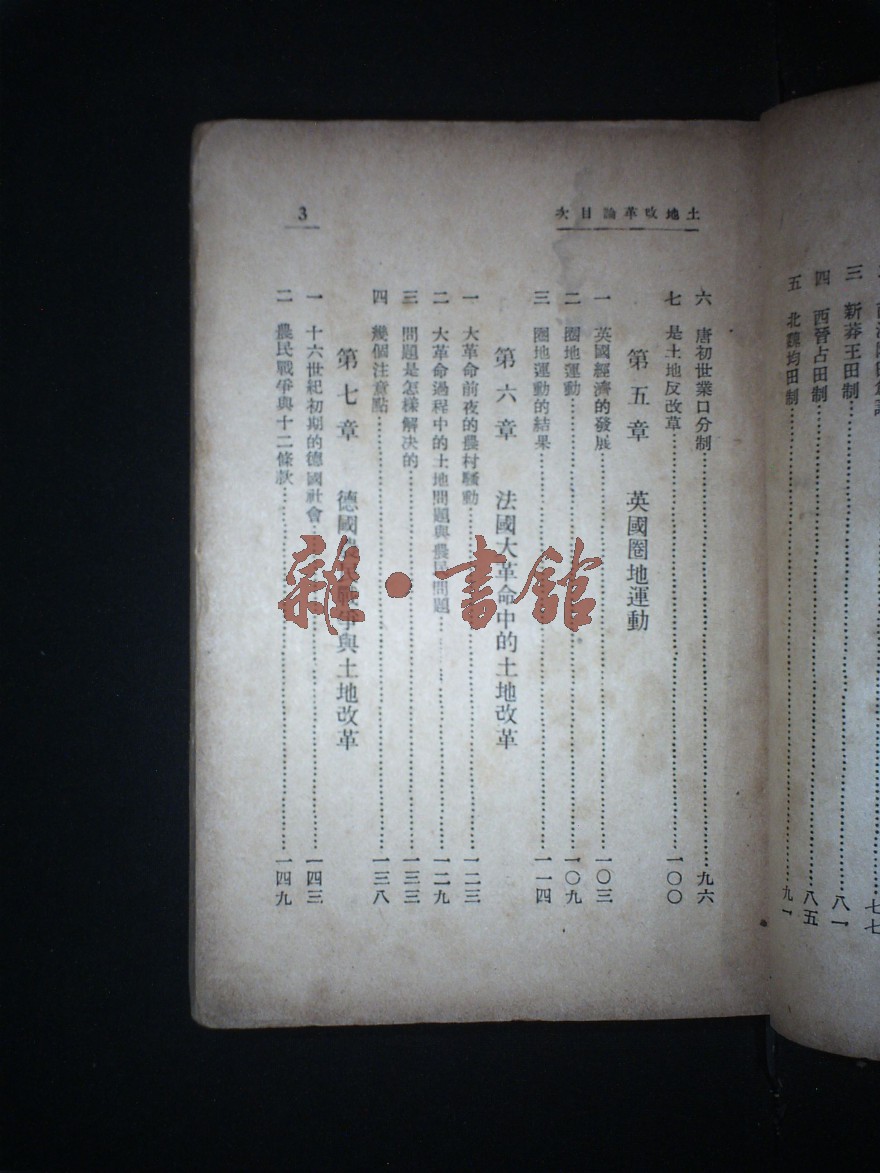 新莽王田制 八一
四 西晉占田制 八五
五 北魏均田制 九一
土地改革論目次
3
六 唐初世業口分制 九六
七 是土地反改革 一〇〇
第五章 英國圈地運動
一 英國經濟的發展 一〇三
二 圈地運動 一〇九
三 圈地運動的結果 一一四
第六章 法國大革命中的土地改革
一 大革命前夜的農村騷動 一二三
二 大革命過程中的土地問題與農民問題 一二九
三 問題是怎樣解決的 一三三
四 幾個注意點 一三八
第七章 德國農民戰爭與土地改革
一 十六世紀初期的德國社會 一四三
二 農民戰爭與十二條款 一四九
雜·書館